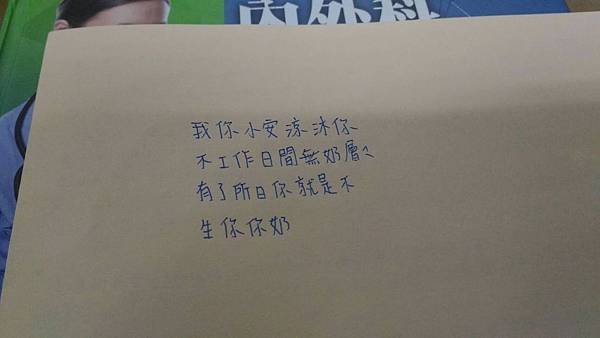 內外科
我你小安涼沐你
不工作日間無奶層ㄟ
有了所日你就是不
生你你奶